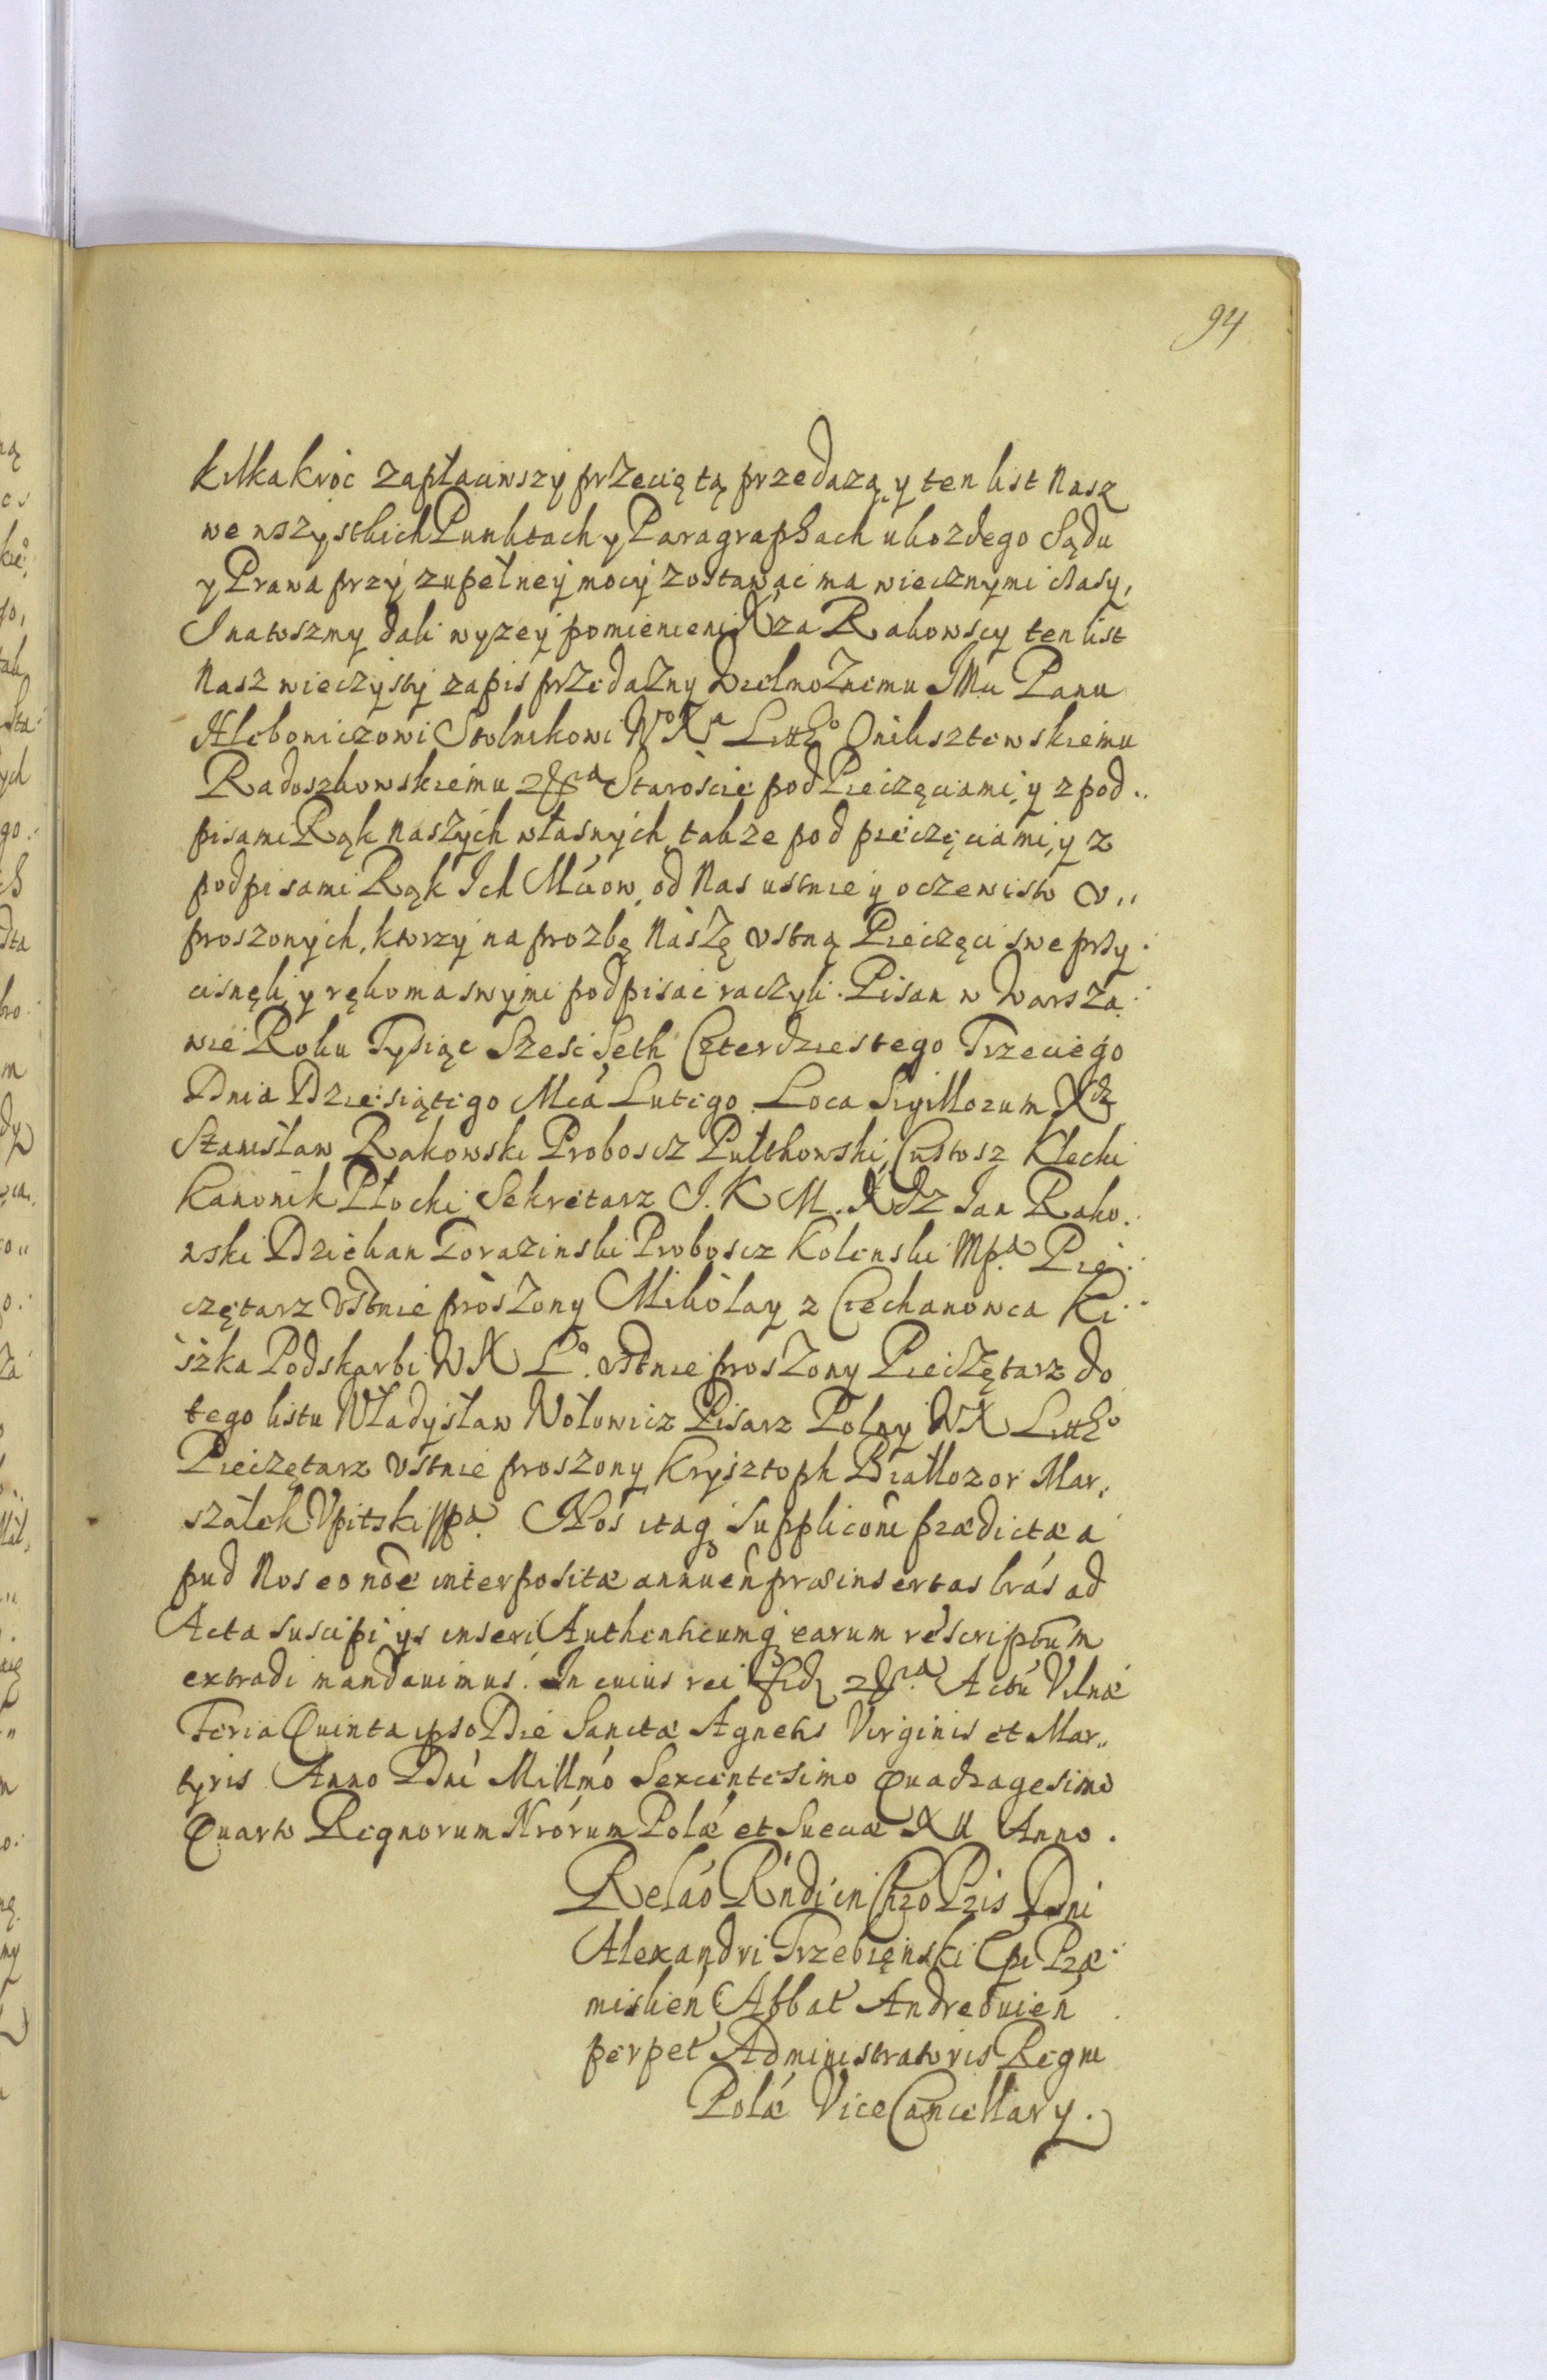 94
kilkakroć zapłaciwszy przecię tą przedazą y ten list Nasz
we wszystkich Punktach y Paragraphach u kozdego Sądu
y Prawa przy zupełney mocy zostawać ma wiecznymi czasy,
I natoszmy dali wyzey pomienieni Xza Rakowscy ten list
Nasz wieczysty zapis przedazny Wielmoznemu JMu Panu
Hleboniczowi Stolnikowi Wo Xa Litto Oniksztewskiemu
Radoszkowskiemu &c Staroscie pod Pieczęciami, y z pod..
pisami Rąk Naszych własnych, takze pod pieczęciami, y z
podpisami Rąk Ich Mciow, od Nas ustnie y oczewisto v..
proszonych, ktorzy na prozbę Naszę vstną Pieczęci swe przy.
cisnęli, y rękoma swymi podpisać raczyli. Pisan w Warsza.
wie Roku Tysiąc Szesc Seth Czterdziestego Trzeciego
Dnia Dziesiątego Mca Lutego. Loca Sigillorum Xdz
Stanisław Rakowski Proboscz Pułthowski, Custosz Klecki
Kanonik Płocki Sekretarz J. K M. Xdz Jan Rako.
wski Dziekan Porazinski Proboscz Kolenski Mpa. Pie.
czętarz vstnie proszony Mikołay z Ciechanowca Ki..
szka Podskarbi W X Lo. vstnie proszony Pieczętarz do
tego listu Władysław Wołowicz Pisarz Polny WX Litto
Pieczętarz vstnie proszony Krysztoph Białłozor Mar,
szałek Vpitski mpa. Nos itaq suppliconi prædictæ a
pud Nos eo noe interpositæ annuen præinsertas lrás ad
Acta suscipi ys inseri Authenticumq earum rescriptum
extradi mandauimus. In cuius rei fid &c. Actu Vilnæ
Feria Quinta ipso Die Sanctæ Agnetis Virginis et Mar..
tyris Anno Dni Millmo Sexcentesimo Quadragesimo
Quarto Regnorum Nrorum Polæ et Sueciæ XII Anno.
Relao Rndi in Chro Pris Dni
Alexandri Trzebienski Epi Præ
mislien, Abbat Andreouien
perpet Administratoris Regni
Polæ ViceCancellary.